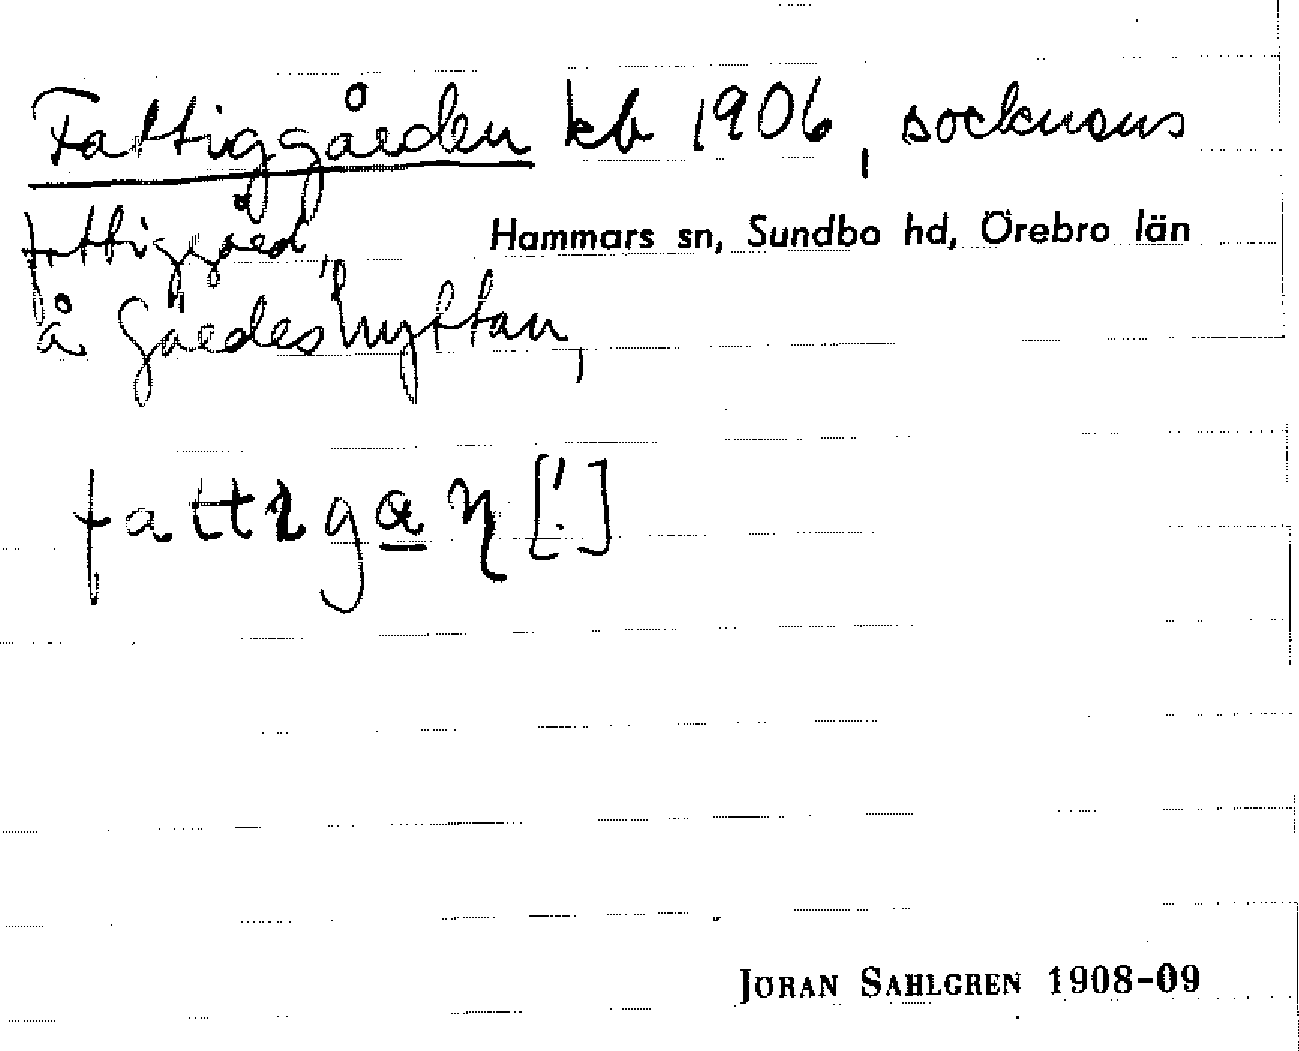 Fattiggården kb 1906, socknens
fattiggård,
Hammars sn, Sundbo hd, Örebro län
å Gårdeshyttan,
fattıgaɳ [!]
JÖRAN SAHLGREN 1908-09